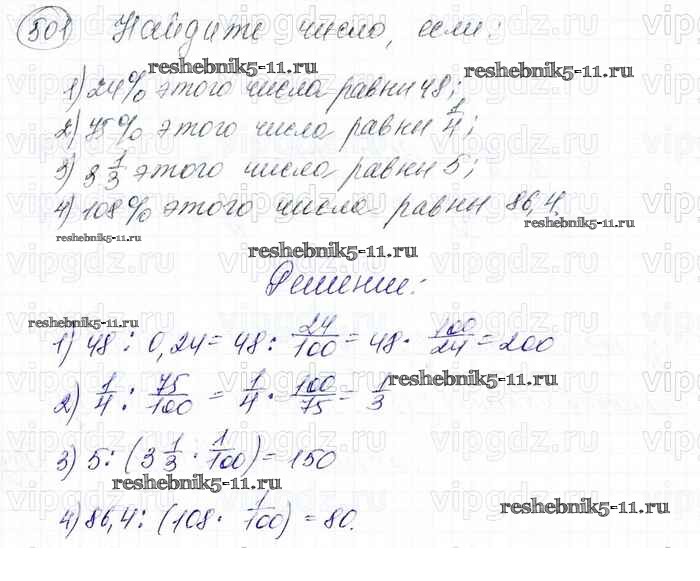 501 Найдите число, если:
reshebnik5-11.ru
1) 24% этого числа равны 48;
reshebnik5-11.ru
2) 75% этого числа равны 1/4;
3) 3 1/3 этого числа равны 5;
4) 108% этого числа равны 86,4.
reshebnik5-11.ru
reshebnik5-11.ru
reshebnik5-11.ru
Решение:
reshebnik5-11.ru
1) 48 : 0,24 = 48 : 24/100 = 48 · 100/24 = 200
reshebnik5-11.ru
2) 1/4 : 75/100 = 1/4 · 100/75 = 1/3
3) 5 : (3 1/3 · 1/100) = 150
reshebnik5-11.ru
reshebnik5-11.ru
4) 86,4 : (108 · 1/100) = 80.
vipgdz.ru